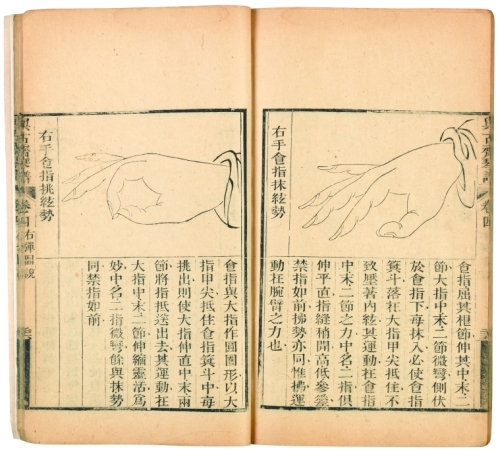 與古齋琴譜
卷四
右手食指抹絃勢
食指屈其根節伸其中末二
節大指中末二節微彎側伏
於食指下每抹入必使食指
箕斗落在大指甲尖抵住不
致壓著內絃其運動在食指
中末二節之力中名二指俱
伸平直指縫稍開高低參差
禁指如前拂勢亦同惟拂運
動在腕臂之力也
右手食指挑絃勢
食指與大指作圓圈形以大
指甲尖抵住食指箕斗中每
挑出則使大指伸直中末兩
節將指抵送出去其運動在
大指中末二節伸縮靈活爲
妙中名二指微彎餘與抹勢
同禁指如前
與古齋琴譜
卷四
右彈圖說